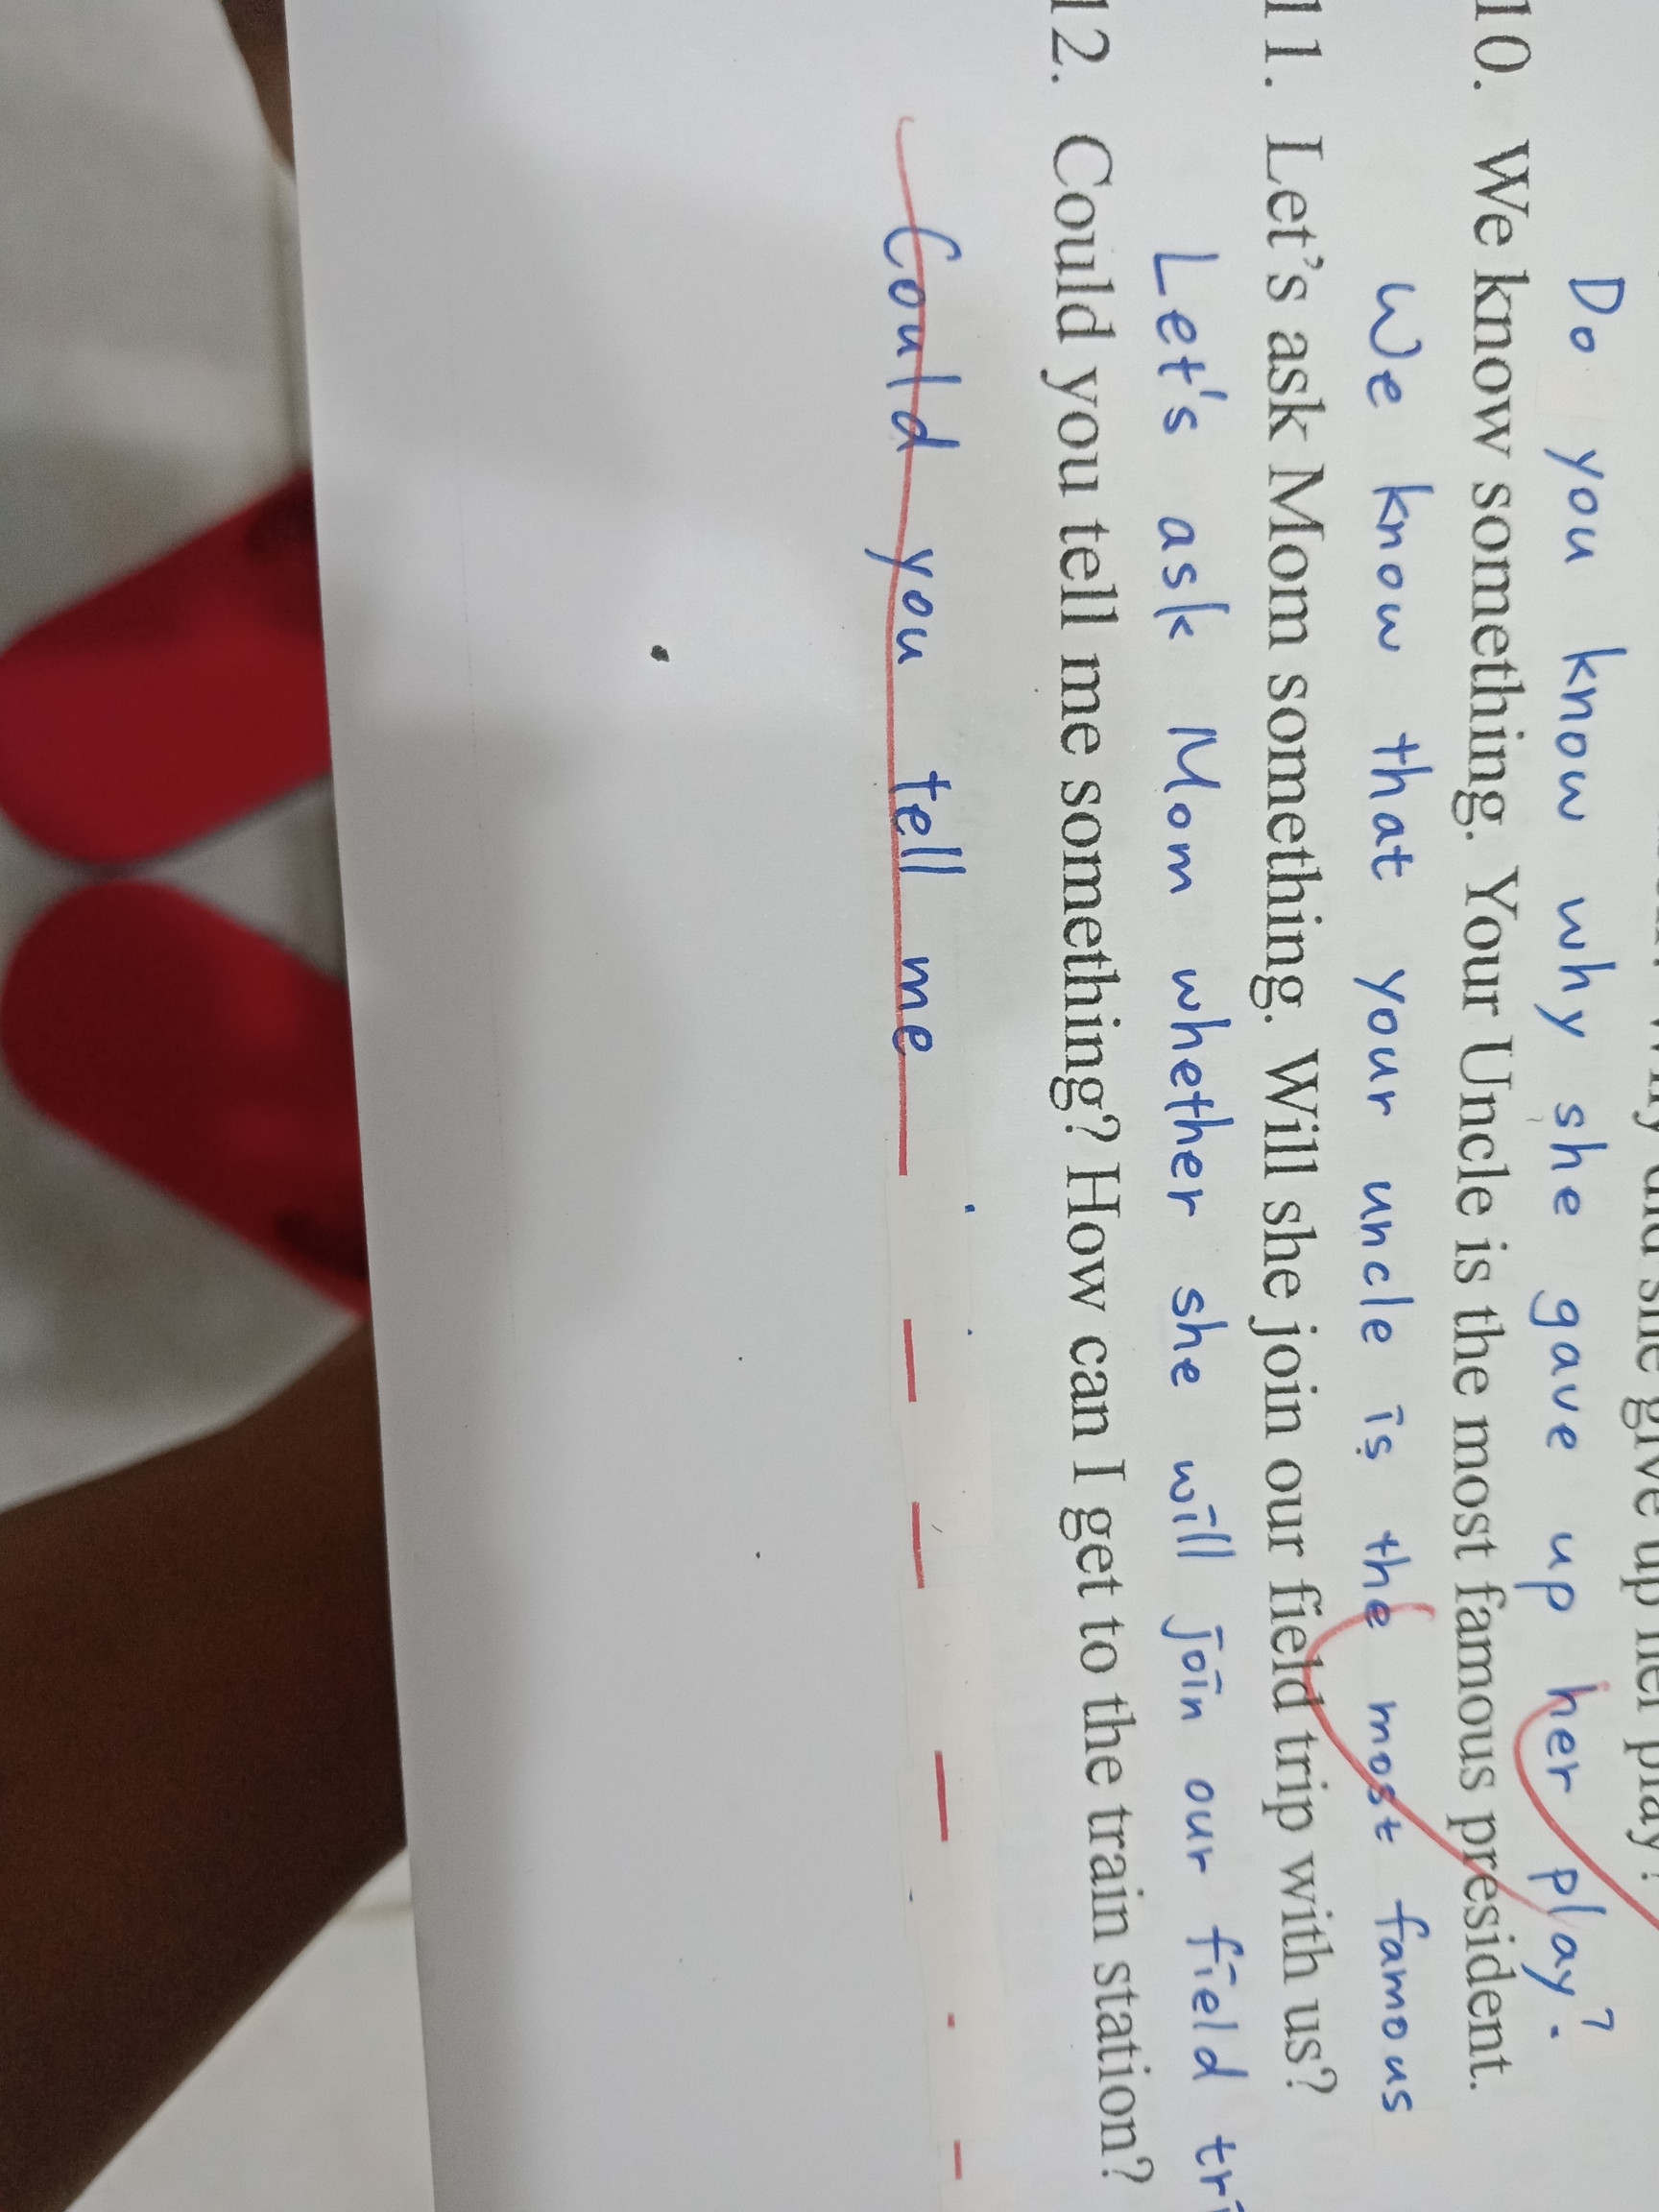 Do you know why she gave up her play?
10. We know something. Your Uncle is the most famous president.
We know that your uncle is the most famous
11. Let's ask Mom something. Will she join our field trip with us?
Let's ask Mom whether she will join our field
12. Could you tell me something? How can I get to the train station?
Could you tell me